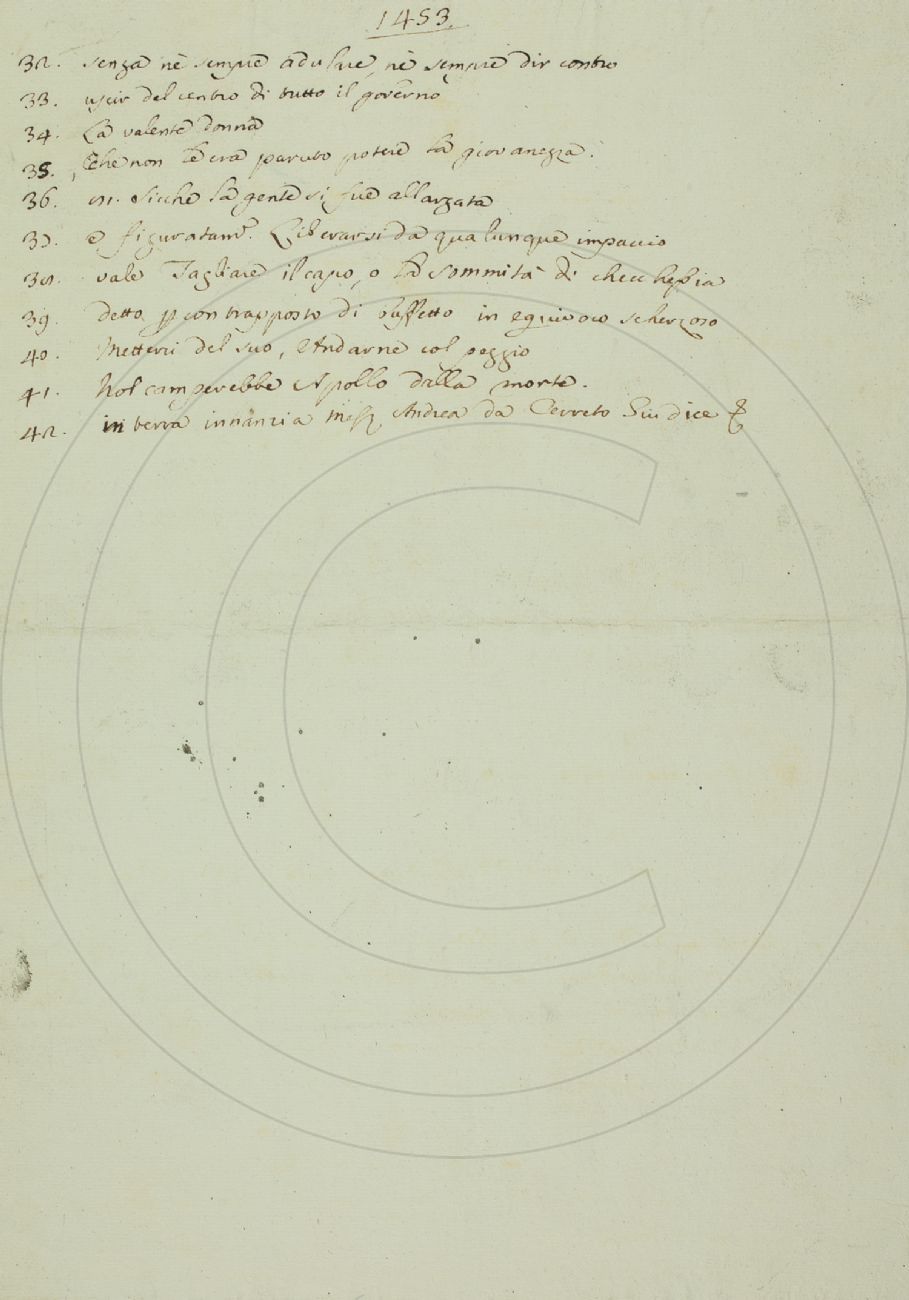 1453.
32. senza nè sempre adulare, nè sempre dir contro
33. uscir del centro di tutto il governo
34. La valente donna
35. Che non le era paruto potere la giovanezza.
36. Sicche la gente si fue allargata
37. e figuratam.e Liberarsi da qualunque impaccio
38. vale Tagliare il capo, o la sommità di checchessia
39. detto p contrapposto di buffetto in equivoco scherzoso
40. Metterci del suo, Andarne col peggio
41. Nol camperebbe Apollo dalla morte.
42. in terra innanzia Mess Andrea da Cerreto Giudice &